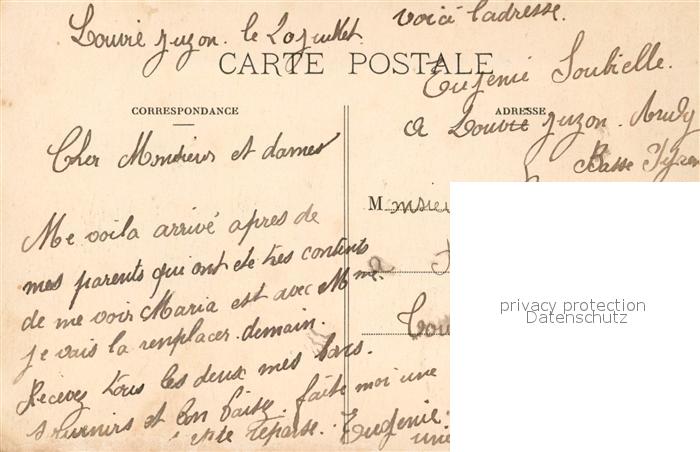 Louvie juzon. le 20 juillet.
voici l'adresse.
CARTE POSTALE
Eugenie Soubielle.
CORRESPONDANCE
ADRESSE
a Louvie juzon. Arudy
Basse Pyren
Cher Monsieur et dames
Monsieu
Me voila arrivé apres de
mes parents qui ont ete tres contents
de me voir Maria est avec Mme.
je vais la remplacer demain.
Recevez tous les deux mes bons
souvenirs et bon baisez. faite moi une
vite reponse. Eugenie.
une
Tou
privacy protection
Datenschutz